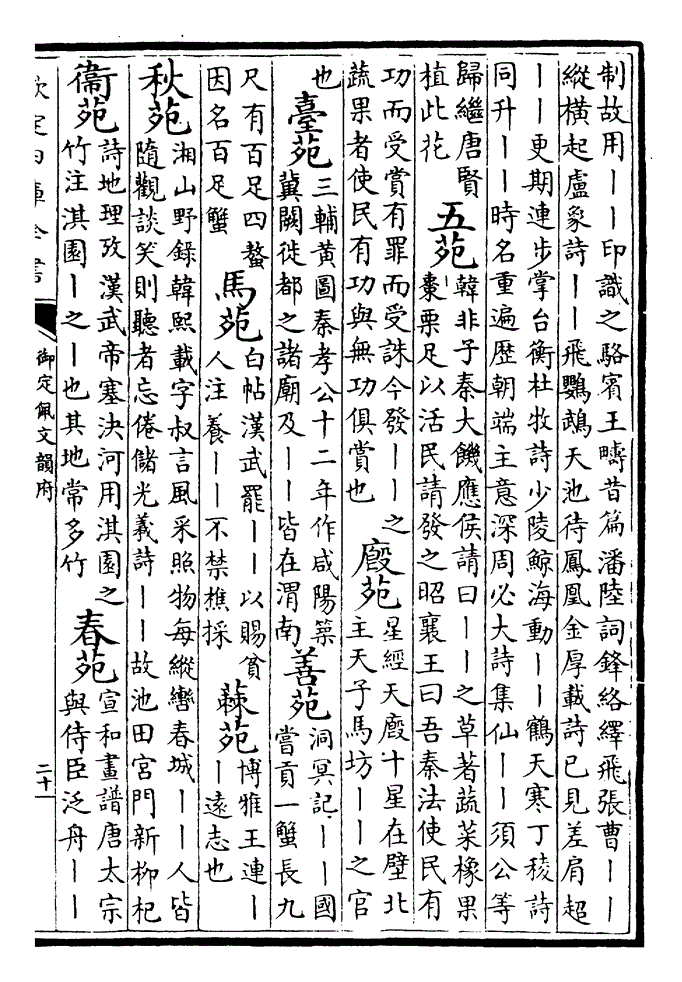 制故用――印識之駱賓王疇昔篇潘陸詞鋒絡繹飛張曹――
縱橫起盧象詩――飛鸚鵡天池待鳳凰金厚載詩已見差肩超
――更期連步掌台衡杜牧詩少陵鯨海動――鶴天寒丁稜詩
同升――時名重遍歴朝端主意深周必大詩集仙――須公等
歸繼唐賢
植此花
五苑
韓非子秦大饑應侯請曰――之草著蔬菜橡果
棗栗足以活民請發之昭襄王曰吾秦法使民有
功而受賞有罪而受誅今發――之
蔬果者使民有功與無功俱賞也
廄苑
星經天廄十星在壁北
主天子馬坊――之官
也
臺苑
三輔黄圖秦孝公十二年作咸陽築
冀闕徙都之諸廟及――皆在渭南
善苑
洞冥記――國
嘗貢一蟹長九
尺有百足四螯
因名百足蟹
馬苑
白帖漢武罷――以賜貧
人注養――不禁樵採
蕀苑
博雅王連―
―遠志也
秋苑
湘山野錄韓熙載字叔言風采照物每縱轡春城――人皆
隨觀談笑則聽者忘倦儲光羲詩――故池田宮門新柳杞
衞苑
詩地理攷漢武帝塞決河用淇園之
竹注淇園―之―也其地常多竹
春苑
宣和畫譜唐太宗
與侍臣泛舟――
欽定四庫全書
御定佩文韻府
二十